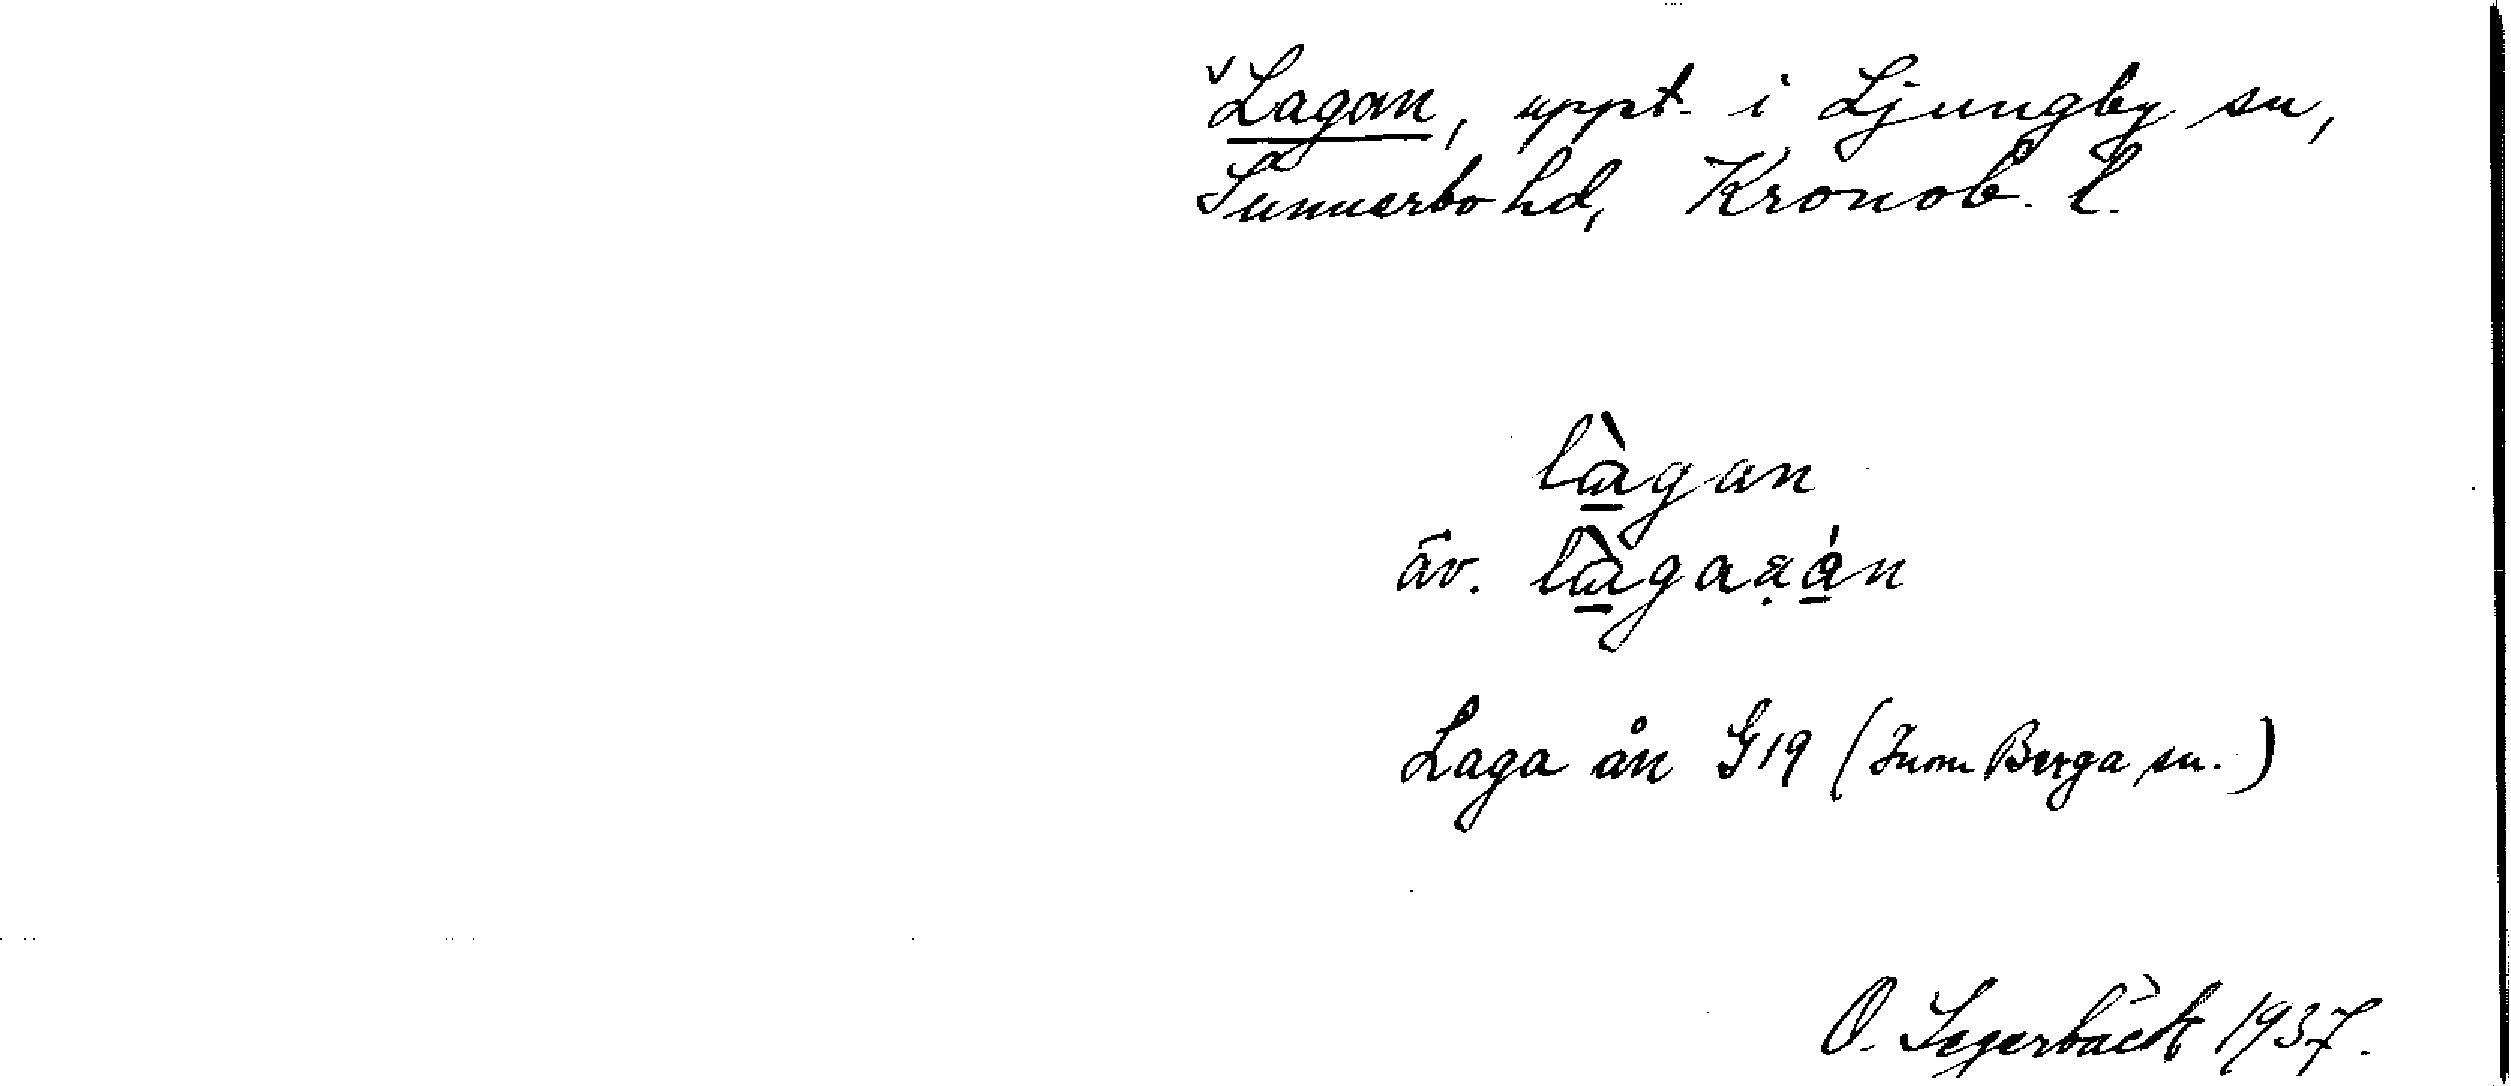 ᵛLagan, uppt. i Ljungby sn,
Sunnerbo hd, Kronob. l.
là̲gan
äv. là̲gaạá̲n
Laga ån G19 (inom Berga sn.)
O. Segerbäck 1937.